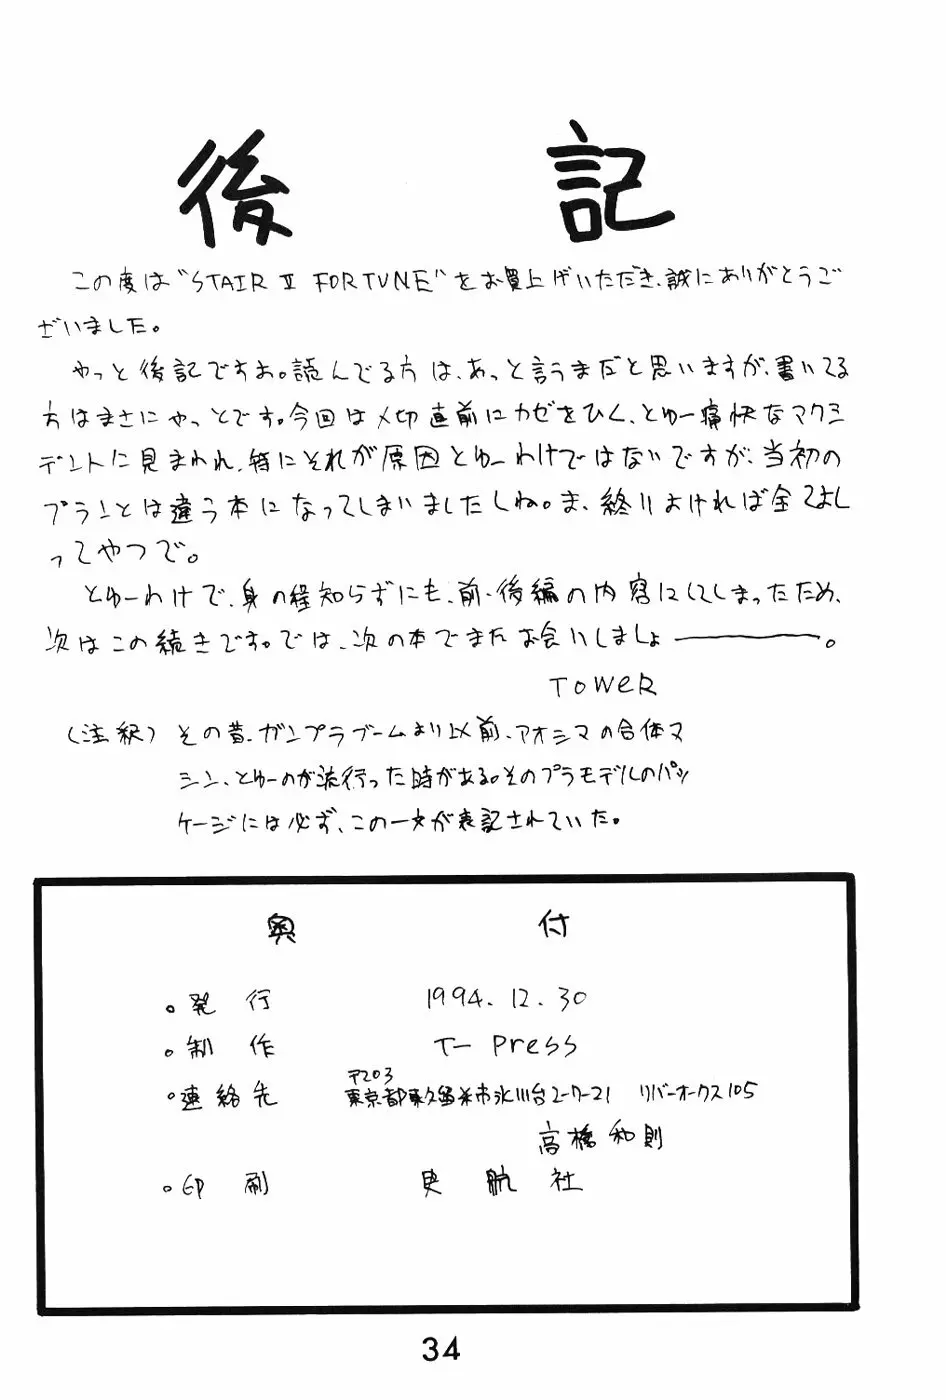 後記
この度は"STAIR II FORTUNE"をお買上げいただき、誠にありがとうご
ざいました。
やっと後記ですよ。読んでる方は、あっと言うまだと思いますが、書いてる
方はまさにやっとです。今回は〆切直前にカゼをひく、とゆー痛快なアクシ
デントに見まわれ、特にそれが原因とゆーわけではないですが、当初の
プランとは違う本になってしまいましたしね。ま、終りよければ全てよし
ってやつで。
とゆーわけで、身の程知らずにも、前・後編の内容にしてしまったため、
次はこの続きです。では、次の本でまたお会いしましょ———。
TOWER
(注釈) その昔、ガンプラブームより以前、アオシマの合体マ
シン、とゆーのが流行った時がある。そのプラモデルのパッ
ケージには必ず、この一文が表記されていた。
奥付
。発行 1994.12.30
。制作 T-Press
〒203
。連絡先 東京都東久留米市氷川台2-7-21 リバーオークス105
高橋和則
。印刷 航社
34